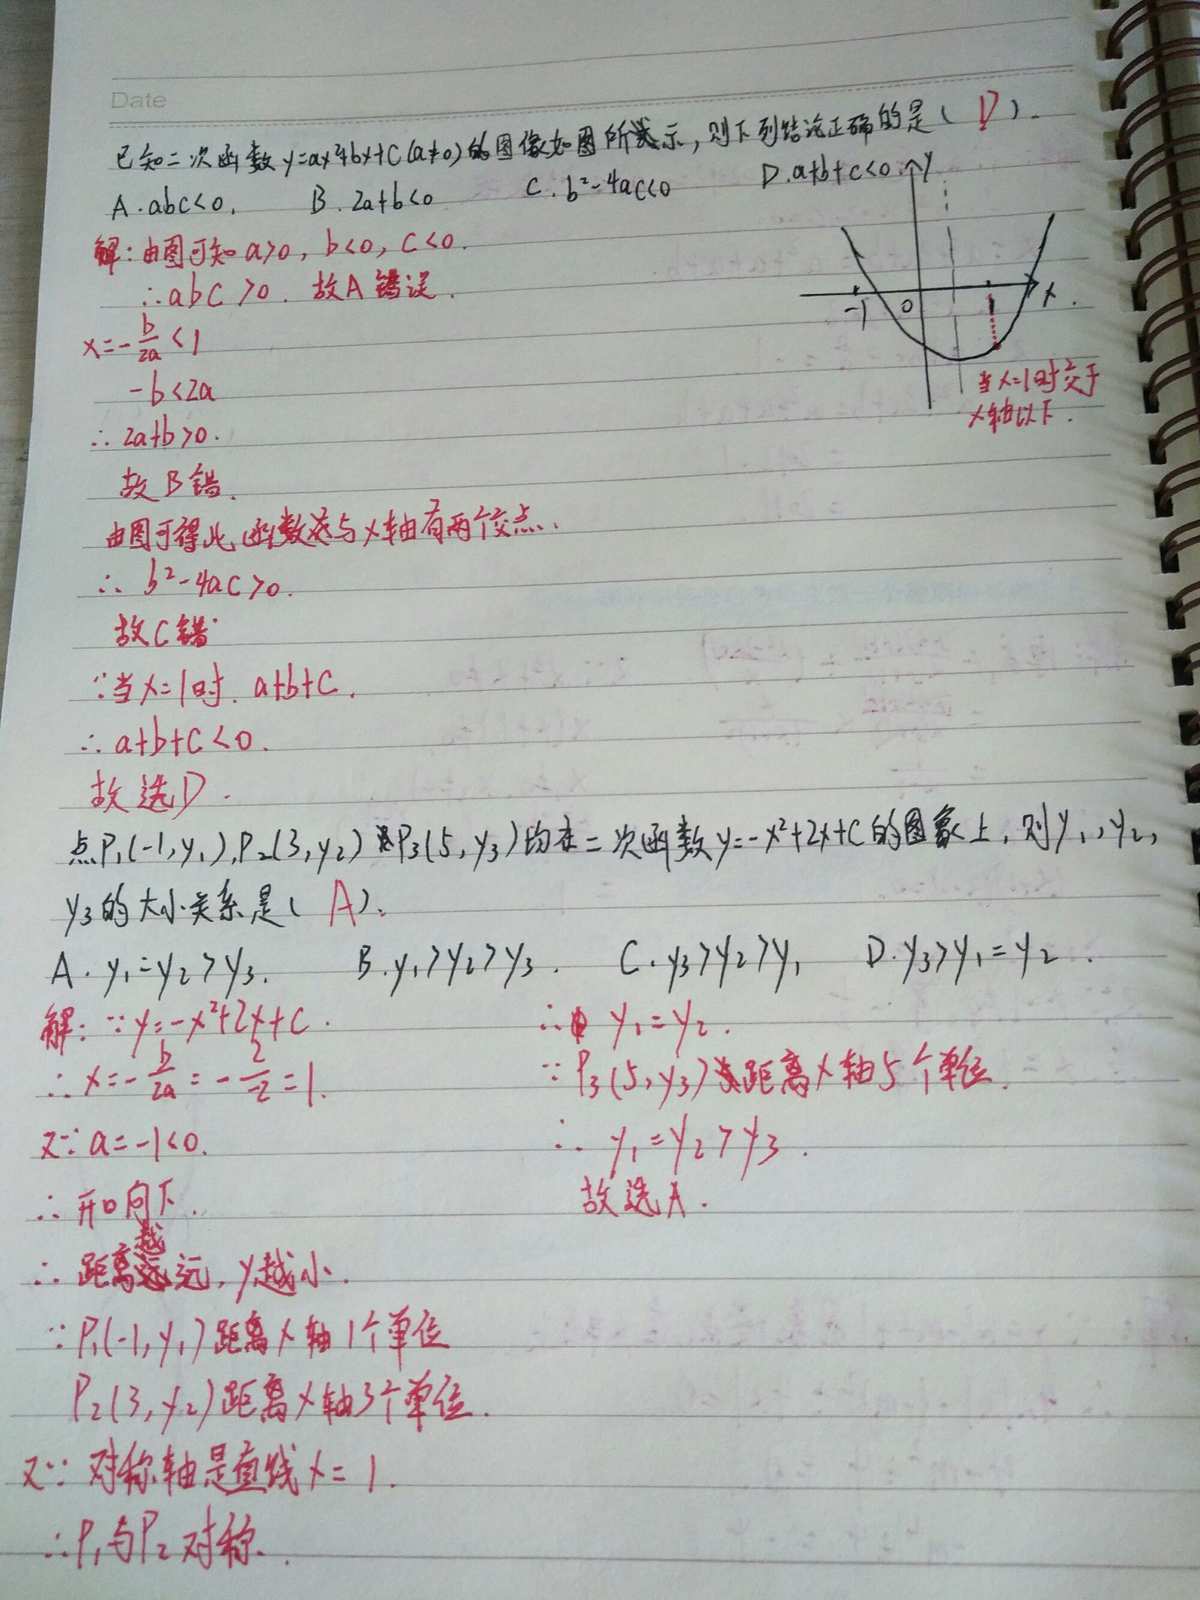 Date
已知二次函数y=ax²+bx+c(a≠0)的图像如图所示,则下列结论正确的是( D ).
A.abc<0. B.2a+b<0 C.b²-4ac<0 D.a+b+c<0
y
-1 0 1 x.
当x=1时交于
x轴以下.
解:由图可知a>0,b<0,c<0.
∴abc>0.故A错误.
x=-b/2a<1
-b<2a
∴2a+b>0.
故B错.
由图可得此函数与x轴有两个交点.
∴b²-4ac>0.
故C错
∵当x=1时.a+b+c.
∴a+b+c<0.
故选D.
点P₁(-1,y₁),P₂(3,y₂)P₃(5,y₃)均在二次函数y=-x²+2x+c的图象上,则y₁,y₂,
y₃的大小关系是( A ).
A.y₁=y₂>y₃. B.y₁>y₂>y₃. C.y₃>y₂>y₁ D.y₃>y₁=y₂.
解:∵y=-x²+2x+c.
∴x=-b/2a=-2/-2=1.
又∵a=-1<0.
∴开口向下.
∴距离越远,y越小.
∵P₁(-1,y₁)距离x轴1个单位
P₂(3,y₂)距离x轴3个单位.
又∵对称轴是直线x=1.
∴P₁与P₂对称.
∴y₁=y₂.
∵P₃(5,y₃)距离x轴5个单位.
∴y₁=y₂>y₃.
故选A.